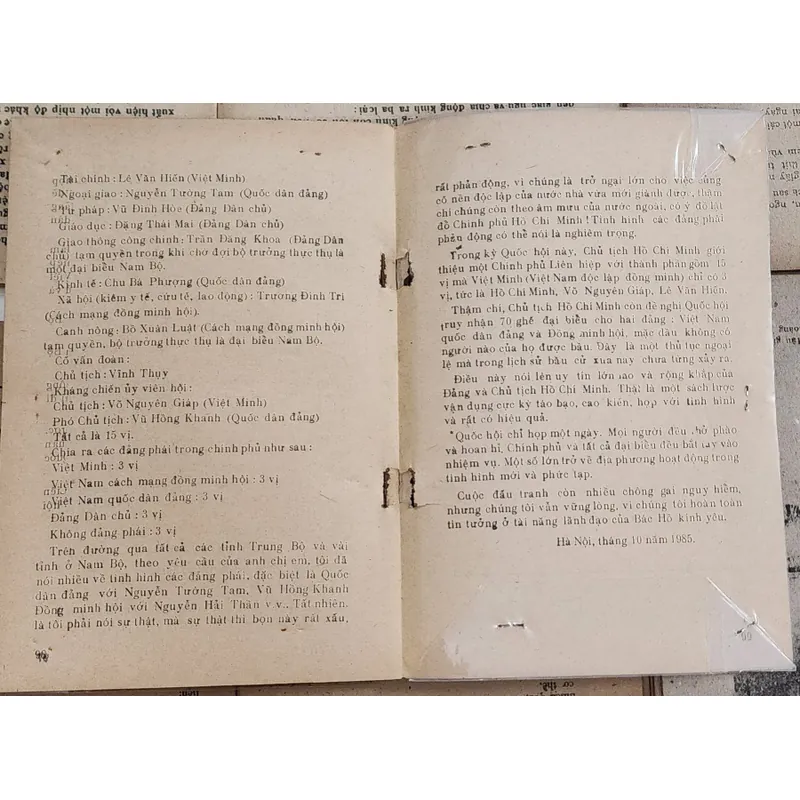 xuất hiện với một nhịp độ khác
Tài chính : Lê Văn Hiến (Việt Minh)
Ngoại giao : Nguyễn Tường Tam (Quốc dân đảng)
Tư pháp : Vũ Đình Hòe (Đảng Dân chủ)
Giáo dục : Đặng Thai Mai (Đảng Dân chủ)
Giao thông công chính : Trần Đăng Khoa (Đảng Dân
chủ) tạm quyền trong khi chờ đợi bộ trưởng thực thụ là
một đại biểu Nam Bộ.
Kinh tế : Chu Bá Phượng (Quốc dân đảng)
Xã hội (kiêm y tế, cứu tế, lao động) : Trương Đình Tri
(Cách mạng đồng minh hội).
Canh nông : Bồ Xuân Luật (Cách mạng đồng minh hội)
tạm quyền, bộ trưởng thực thụ là đại biểu Nam Bộ.
Cố vấn đoàn :
Chủ tịch : Vĩnh Thụy
Kháng chiến ủy viên hội :
Chủ tịch : Võ Nguyên Giáp (Việt Minh)
Phó Chủ tịch : Vũ Hồng Khanh (Quốc dân đảng)
Tất cả là 15 vị.
Chia ra các đảng phái trong chính phủ như sau :
Việt Minh : 3 vị
Việt Nam cách mạng đồng minh hội : 3 vị
Việt Nam quốc dân đảng : 3 vị
Đảng Dân chủ : 3 vị
Không đảng phái : 3 vị
Trên đường qua tất cả các tỉnh Trung Bộ và vài
tỉnh ở Nam Bộ, theo yêu cầu của anh chị em, tôi đã
nói nhiều về tình hình các đảng phái, đặc biệt là Quốc
dân đảng với Nguyễn Tường Tam, Vũ Hồng Khanh
Đồng minh hội với Nguyễn Hải Thần v.v.. Tất nhiên.
là tôi phải nói sự thật, mà sự thật thì bọn này rất xấu,
rất phản động, vì chúng là trở ngại lớn cho việc củng
cố nền độc lập của nước nhà vừa mới giành được, thậm
chí chúng còn theo âm mưu của nước ngoài, có ý đồ lật
đồ Chính phủ Hồ Chí Minh ! Tình hình các đảng phái
phản động có thể nói là nghiêm trọng.
Trong kỳ Quốc hội này, Chủ tịch Hồ Chí Minh giới
thiệu một Chính phủ Liên hiệp với thành phần gồm 15
vị mà Việt Minh (Việt Nam độc lập đồng minh) chỉ có 3
vị, tức là Hồ Chí Minh, Võ Nguyên Giáp, Lê Văn Hiến.
Thậm chí, Chủ tịch Hồ Chí Minh còn đề nghị Quốc hội
truy nhận 70 ghế đại biểu cho hai đảng : Việt Nam
quốc dân đảng và Đồng minh hội, mặc dầu không có
người nào của họ được bầu. Đây là một thủ tục ngoại
lệ mà trong lịch sử bầu cử xưa nay chưa từng xảy ra.
Điều này nói lên uy tín lớn lao và rộng khắp của
Đảng và Chủ tịch Hồ Chí Minh. Thật là một sách lược
vận dụng cực kỳ táo bạo, cao kiến, hợp với tình hình
và rất có hiệu quả.
Quốc hội chỉ họp một ngày. Mọi người đều hồ phào
và hoan hỉ, Chính phủ và tất cả đại biểu đều bắt tay vào
nhiệm vụ. Một số lớn trở về địa phương hoạt động trong
tình hình mới và phức tạp.
Cuộc đấu tranh còn nhiều chông gai nguy hiểm,
nhưng chúng tôi vẫn vững lòng, vì chúng tôi hoàn toàn
tin tưởng ở tài năng lãnh đạo của Bác Hồ kính yêu.
Hà Nội, tháng 10 năm 1985.
99